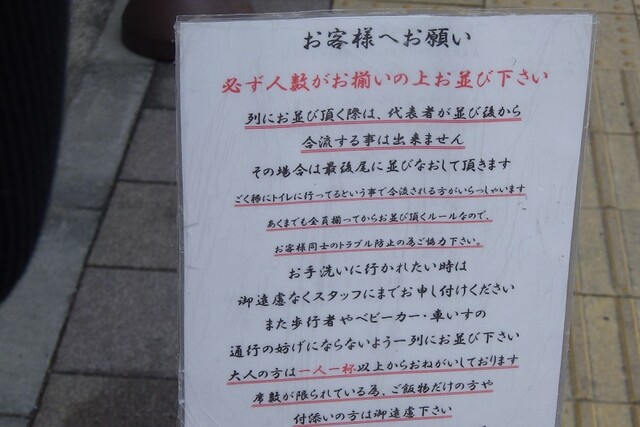 お客様へお願い
必ず人数がお揃いの上お並び下さい
列にお並び頂く際は、代表者が並び後から
合流する事は出来ません
その場合は最後尾に並びなおして頂きます
ごく稀にトイレに行ってるという事で合流される方がいらっしゃいます
あくまでも全員揃ってからお並び頂くルールなので、
お客様同士のトラブル防止の為ご協力下さい。
お手洗いに行かれたい時は
御遠慮なくスタッフにまでお申し付けください
また歩行者やベビーカー・車いすの
通行の妨げにならないよう一列にお並び下さい
大人の方は一人一杯以上からおねがいしております
席数が限られている為、ご飯物だけの方や
付添いの方は御遠慮下さい